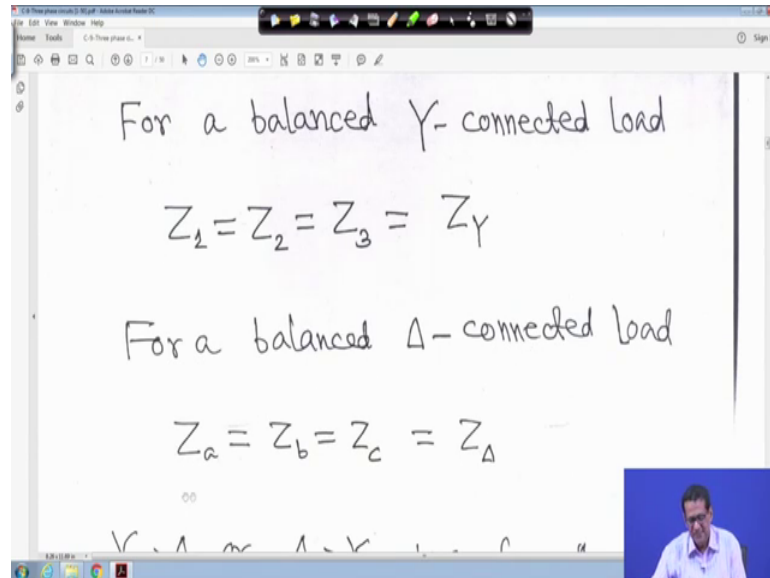 C-9-Three phase circuits [1-30].pdf - Adobe Acrobat Reader DC
File Edit View Window Help
Home Tools C-9-Three phase ci... × Sign
7 / 30
For a balanced Y- connected load
Z₁ = Z₂ = Z₃ = Z_Y
For a balanced Δ- connected load
Z_a = Z_b = Z_c = Z_Δ